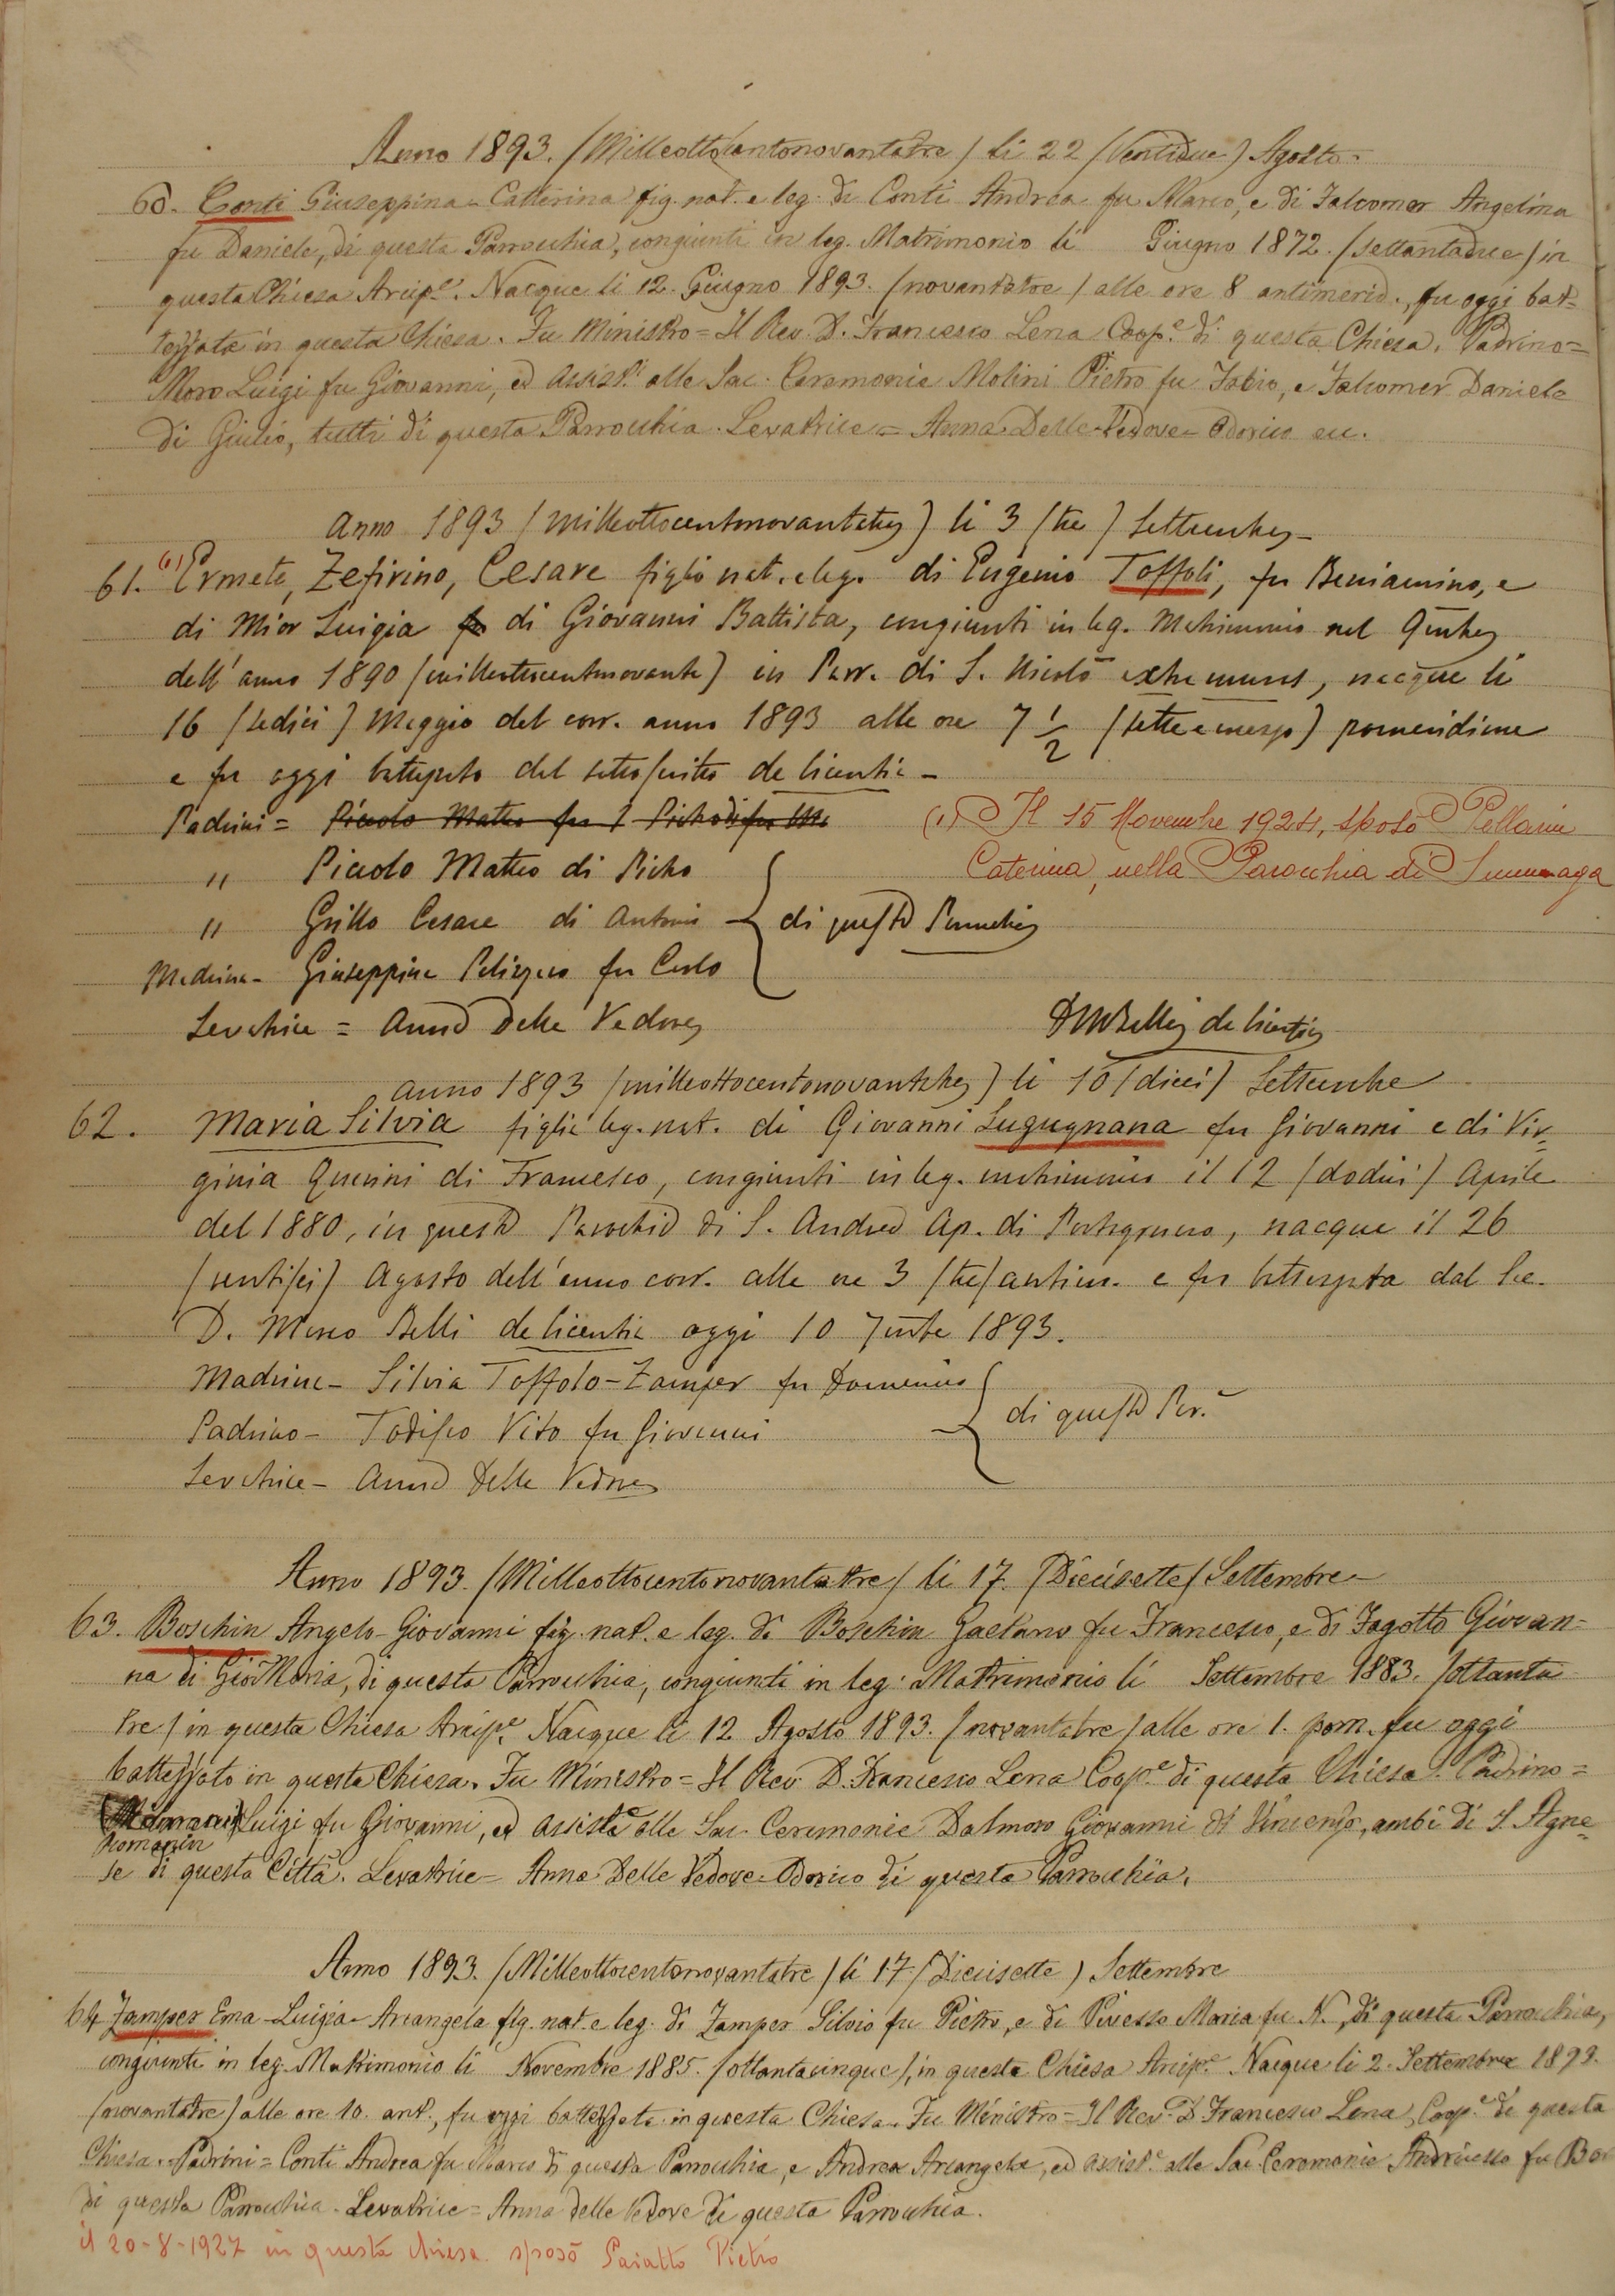 Anno 1893. (Milleottocantonovantatre) li 22 (Ventidue) Agosto.
60. Conti Giuseppina-Catterina fig. nat. e leg. di Conti Andrea fu Marco, e di Falcomer Angelina
fu Daniele, di questa Parrocchia, congiunti in leg. Matrimonio li Giugno 1872. (settantadue) in
questa Chiesa Arcip.e. Nacque li 12. Giugno 1893. (novantatre) alle ore 8 antimerid., fu oggi bat=
tezzata in questa Chiesa. Fu Ministro = Il Rev. D. Francesco Lena Coop.e di questa Chiesa. Padrino=
Moro Luigi fu Giovanni, ed assist.i alle Sac. Ceremonie Molini Pietro fu Fabio, e Falcomer Daniele
di Giulio, tutti di questa Parrocchia. Levatrice = Anna Delle-Vedove-Odorico
Anno 1893 (milleottocentonovantatre) li 3 (tre) Settembre
61. (1) Ermete, Zefirino, Cesare figlio nat. e leg. di Eugenio Toffoli, fu Beniamino, e
di Mior Luigia fu di Giovanni Battista, congiunti in leg. Matrimonio nel
dell'anno 1890 (milleottocentonovanta) in Parr. di S. Nicolò extra muros, nacque li
16 (sedici) Maggio del corr. anno 1893 alle ore 7 1/2 (sette e mezzo) pomeridiane
e fu oggi battezzato dal sottoscritto de licentia -
Padrini = Piccolo Matteo fu
" Piccolo Matteo di Pietro
" Grillo Cesare di Antonio
di questa Parrocchia
Madrina - Giuseppina fu Carlo
Levatrice = Anna Delle Vedove
(1) Il 15 Novembre 1924, sposò Pellarin
Caterina, nella Parocchia di Summaga
DMBelli de licentia
Anno 1893 (milleottocentonovantatre) li 10 (dieci) Settembre
62. Maria Silvia figlia leg. nat. di Giovanni Lugugnana fu Giovanni e di Vir=
ginia Querini di Francesco, congiunti in leg. matrimonio il 12 (dodici) Aprile
del 1880, in questa Parochia di S. Andrea Ap. di Portogruaro, nacque il 26
(ventisei) Agosto dell'anno corr. alle ore 3 (tre) antim. e fu battezzata dal Sac.
D. Marco Belli de licentia oggi 10 7mbre 1893.
Madrina - Silvia Toffolo-Zamper fu Domenico
Padrino - Todisco Vito fu Giovanni
di questa Par.a
Levatrice - Anna Delle Vedove
Anno 1893. (Milleottocentonovantatre) li 17. (Dieciisette) Settembre
63. Boschin Angelo-Giovanni fig. nat. e leg. di Boschin Gaetano fu Francesco, e di Fagotto Giovan=
na di Gio. Maria, di questa Parrocchia, congiunti in leg. Matrimonio li Settembre 1883. (ottanta
tre) in questa Chiesa Arcip.e. Nacque li 12 Agosto 1893. (novantatre) alle ore 1. pom. fu oggi
battezzato in questa Chiesa. Fu Ministro = Il Rev. D. Francesco Lena Coop.e di questa Chiesa. Padrino=
Luigi fu Giovanni, ed assist.e alle Sac. Ceremonie Dalmoro Giovanni di Vincenzo, ambi di S. Agne=
Romanin
se di questa Città. Levatrice = Anna Delle Vedove-Odorico di questa Parrocchia.
Anno 1893. (Milleottocentonovantatre) li 17 (Dieciisette) Settembre
64 Zamper Ema-Luigia-Arcangela fig. nat. e leg. di Zamper Silvio fu Pietro, e di Maria fu N., di questa Parrochia,
congiunti in leg. Matrimonio li Novembre 1885. (ottantacinque), in questa Chiesa Arcip.e. Nacque li 2. Settembre 1893.
(novantatre) alle ore 10. ant., fu oggi battezzata in questa Chiesa. Fu Ministro = Il Rev. D Francesco Lena, Coop.e di questa
Chiesa. Padrini = Conti Andrea fu Marco di questa Parrochia, e Andrea Arcangela, ed assist.e alle Sac. Ceremonie fu
di questa Parrochia. Levatrice = Anna delle Vedove di questa Parrochia.
il 20-8-1927 in questa chiesa sposò Paiatto Pietro